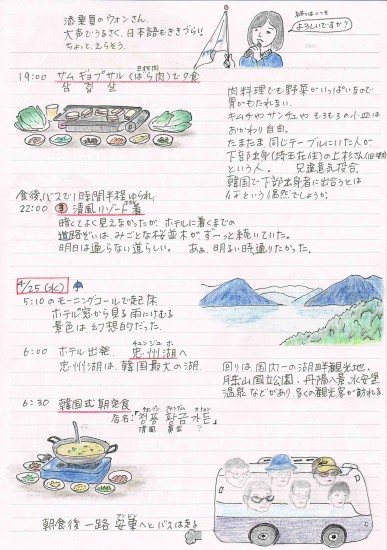 添乗員のウォンさん
大声でうるさく、日本語もききづらい
ちょっと、えらそう。
よろしいですか?
19:00 サムギョプサル(ばら肉)で夕食
삼 겹 살
肉料理でも野菜がいっぱいなので
胃がもたれない。
キムチやサンチュやもろもろの小皿は
おかわり自由。
たまたま同じテーブルにいた人が
下部出身(埼玉在住)の上杉さん
という人。 兄達意気投合。
韓国で下部出身者に出合うとは
何という偶然でしょうか。
食後、バスで1時間半程ゆられ、
22:00 清風リゾート着
暗くてよく見えなかったが、ホテルに着くまでの
道路ぞいは、みごとな桜並木がずーっと続いていた。
明日は通らない道らしい。 あぁ、明るい時通りたかった。
4/25(水)
5:10のモーニングコールで起床
ホテル窓から見る雨にけむる
景色は幻想的だった。
6:00 ホテル出発、忠州湖へ
チュンジュホ
忠州湖は、韓国最大の湖
回りは、国内一の湖畔観光地。
月岳山国立公園・丹陽八景・水安堡
温泉などがあり、多くの観光客が訪れる
6:30 韓国式朝定食
店名:「청풍 황금 가든」
清風 黄金 ?
朝食後 一路 安東へとバスは走る
アンドン